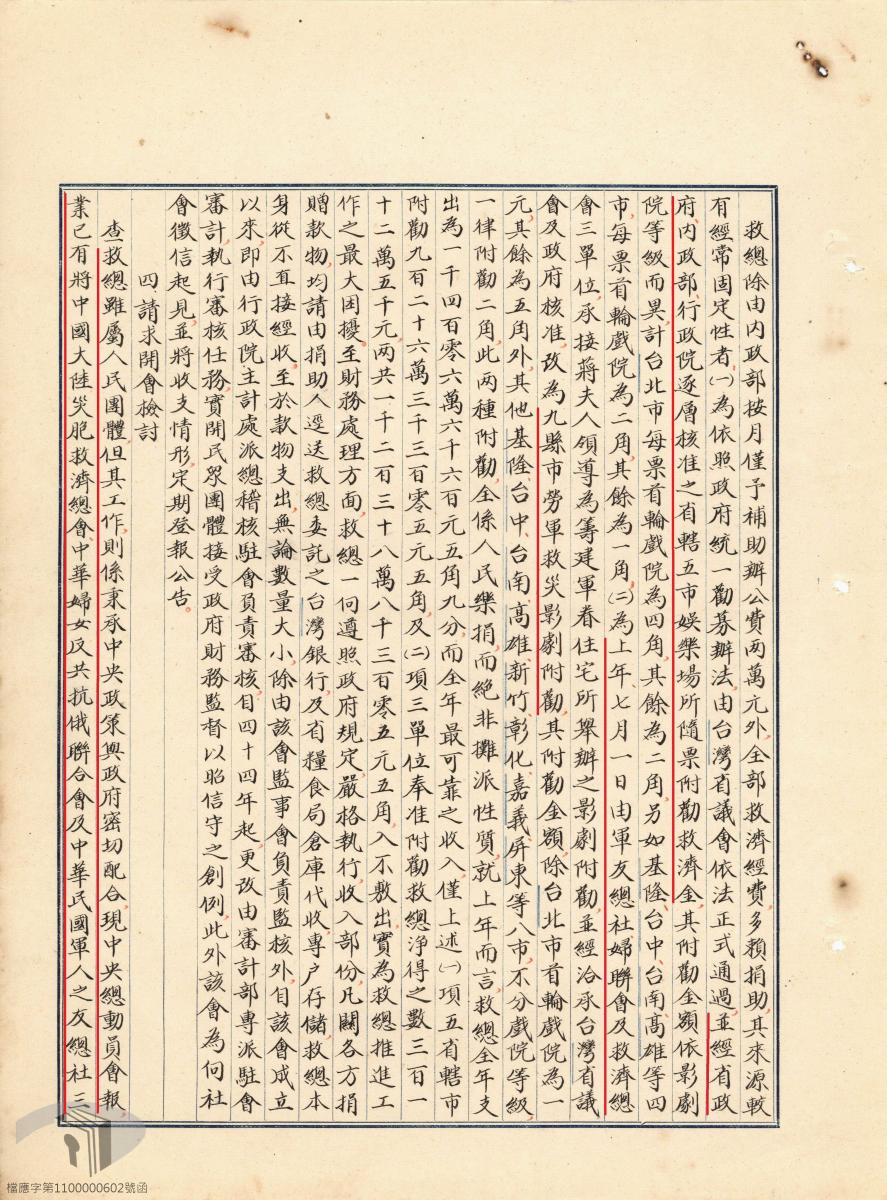 救總除由內政部按月僅予補助辦公費兩萬元外，全部救濟經費，多賴捐助，其來源較
有經常固定性者，㈠為依照政府統一勸募辦法，由台灣省議會依法正式通過，並經省政
府內政部、行政院逐層核准之省轄五市娛樂場所隨票附勸救濟金，其附勸金額依影劇
院等級而異，計台北市每票首輪戲院為四角，其餘為二角，另如基隆、台中、台南、高雄等四
市，每票首輪戲院為二角，其餘為一角，㈡為上年七月一日由軍友總社婦聯會及救濟總
會三單位，承接蔣夫人領導為籌建軍眷住宅所舉辦之影劇附勸，並經洽承台灣省議
會及政府核准，改為九縣市勞軍救災影劇附勸，其附勸金額，除台北市首輪戲院為一
元，其餘為五角外，其他基隆、台中、台南、高雄、新竹、彰化、嘉義、屏東等八市，不分戲院等級，
一律附勸二角，此兩種附勸，全係人民樂捐，而絕非攤派性質，就上年而言，救總全年支
出為一千四百零六萬六千六百元五角九分，而全年最可靠之收入，僅上述㈠項五省轄市
附勸九百二十六萬三千三百零五元五角，及㈡項三單位奉准附勸救總淨得之數三百一
十二萬五千元，兩共一千二百三十八萬八千三百零五元五角，入不敷出，實為救總推進工
作之最大困擾。至財務處理方面，救總一向遵照政府規定，嚴格執行，收入部份，凡關各方捐
贈款物，均請由捐助人逕送救總委託之台灣銀行，及省糧食局倉庫代收，專户存儲，救總本
身從不直接經收，至於款物支出，無論數量大小，除由該會監事會負責監核外，自該會成立
以來，即由行政院主計處派總稽核駐會負責審核，自四十四年起，更改由審計部專派駐會
審計，執行審核任務，實開民眾團體接受政府財務監督以昭信守之創例，此外該會為向社
會徵信起見，並將收支情形，定期登報公告。
四、請求開會檢討
查救總雖屬人民團體，但其工作，則係秉承中央政策與政府密切配合，現中央總動員會報，
業已有將中國大陸災胞救濟總會、中華婦女反共抗俄聯合會及中華民國軍人之友總社三
檔應字第1100000602號函